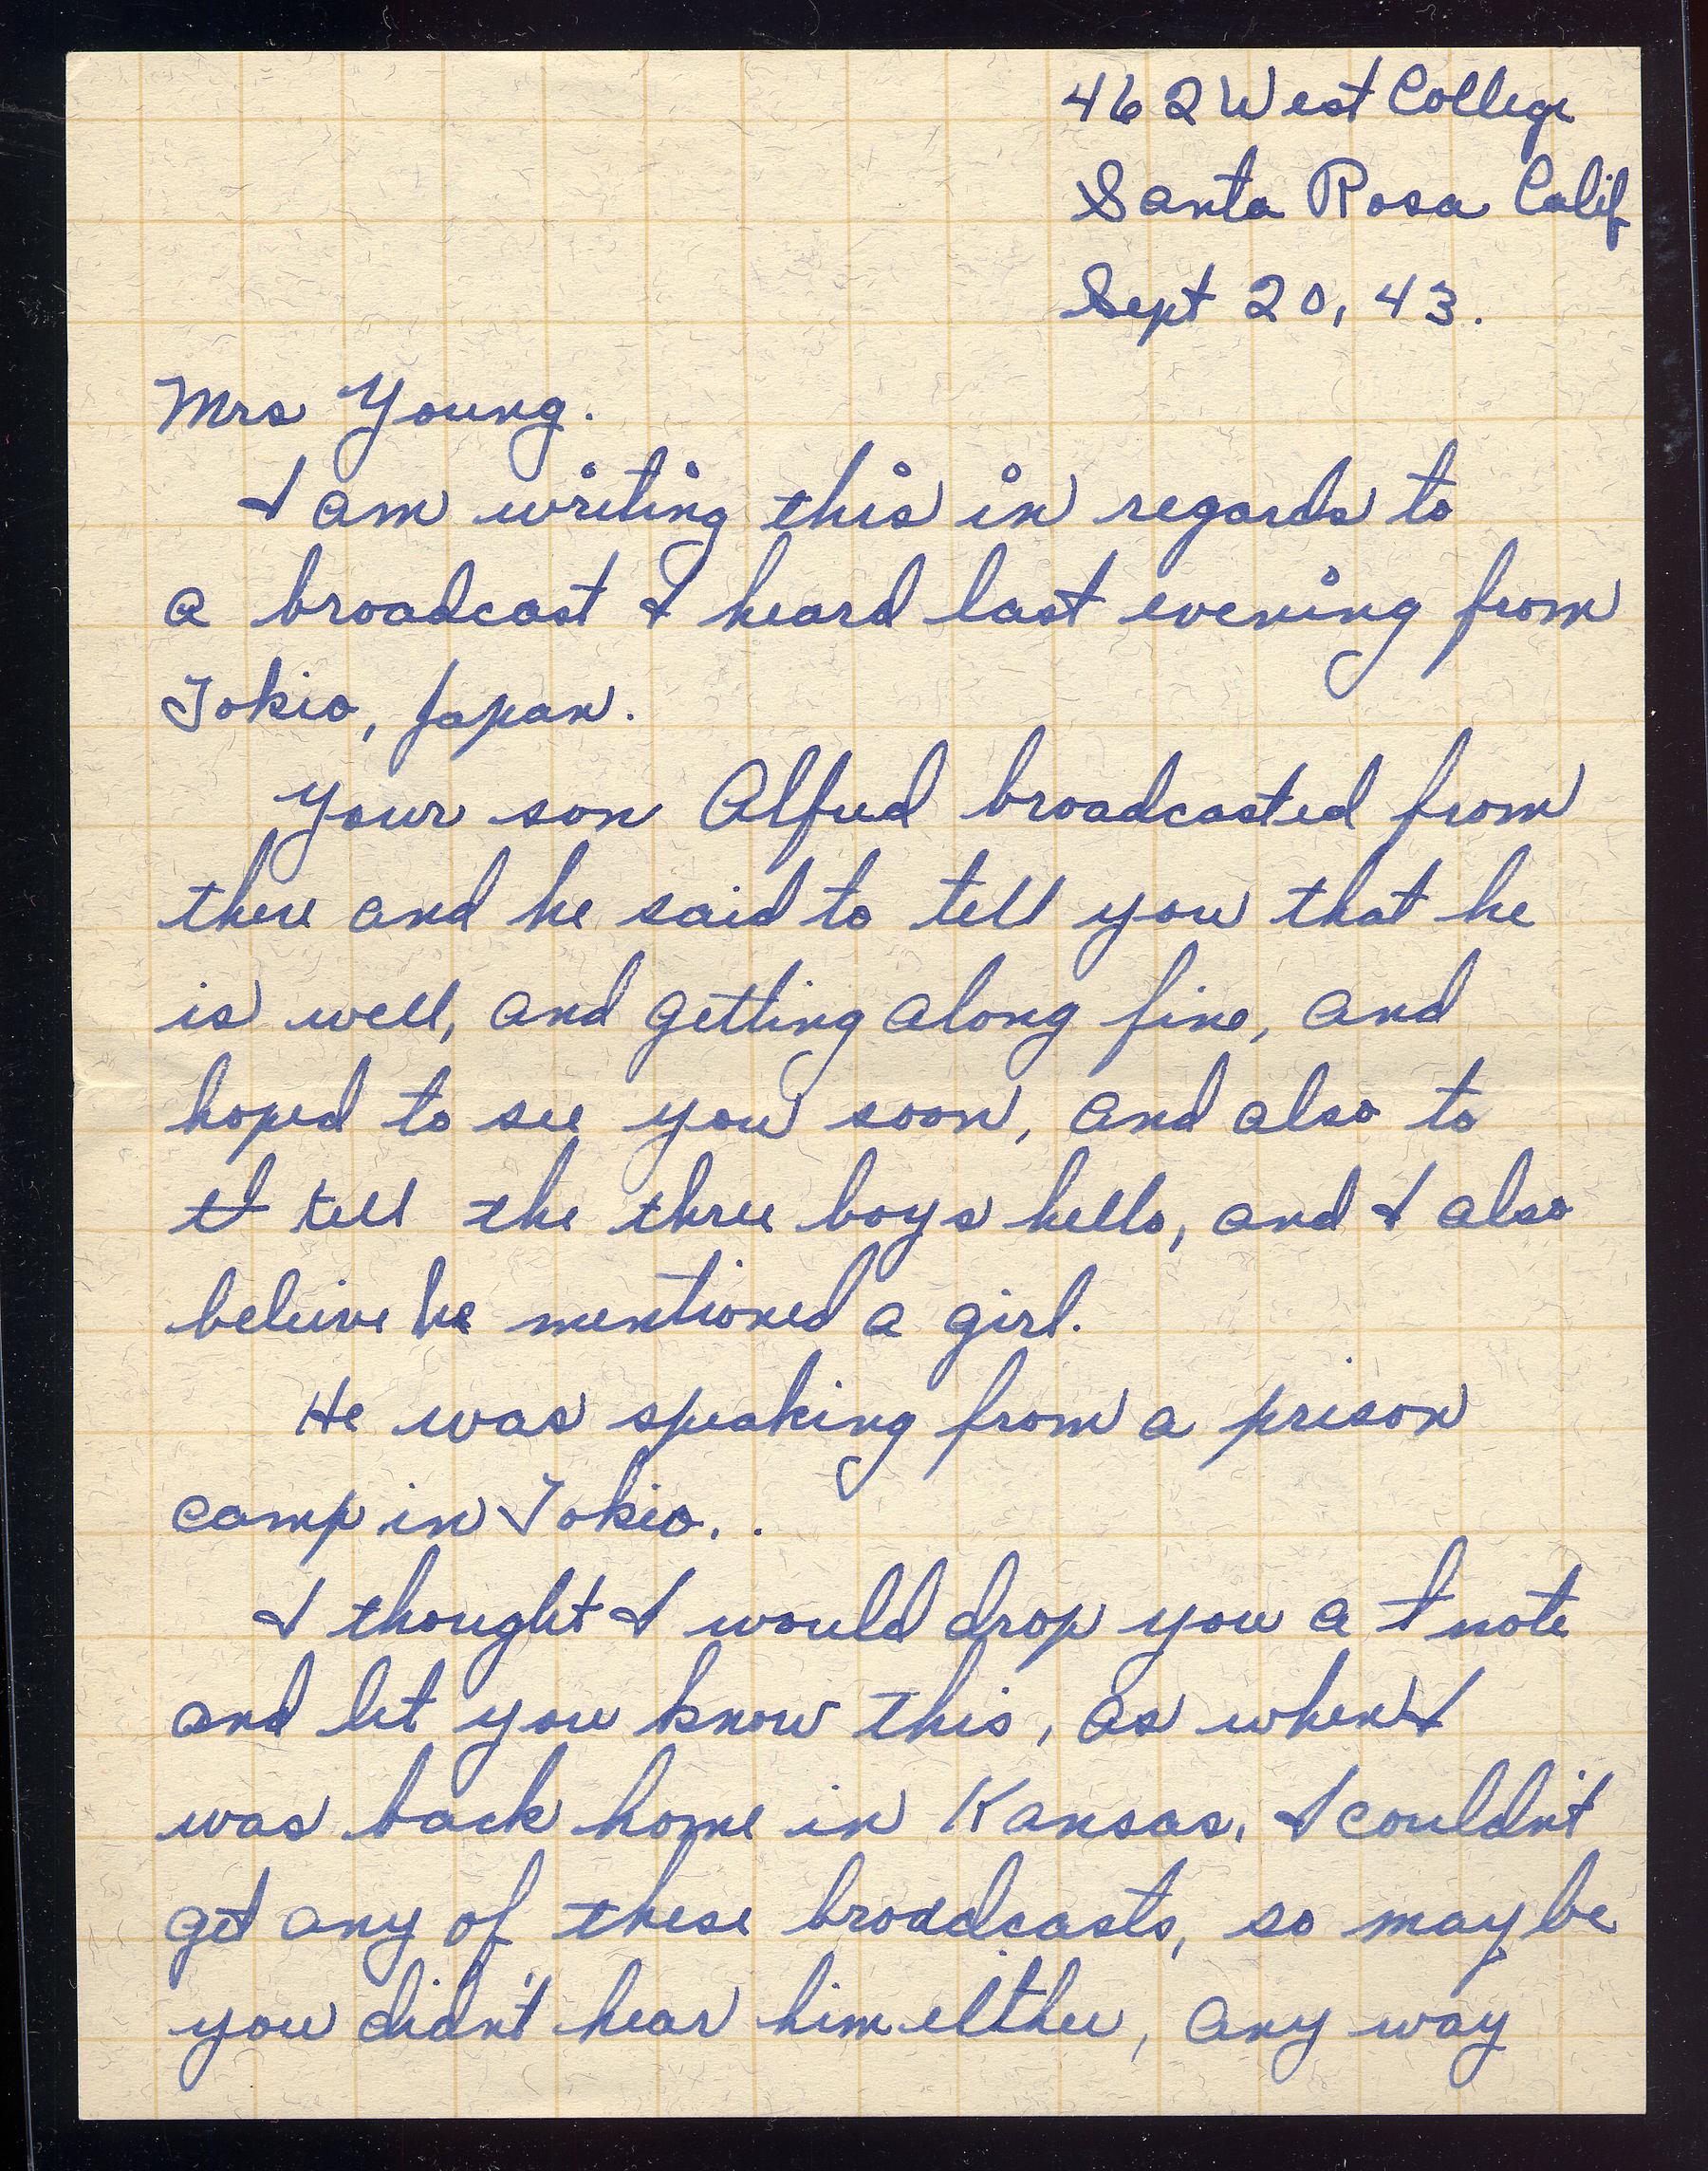 462 West College
Santa Rosa Calif
Sept 20, 43.
Mrs Young.
I am writing this in regards to
a broadcast I heard last evening from
Tokio, Japan.
Your son Alfred broadcasted from
there and he said to tell you that he
is well, and getting along fine, and
hoped to see you soon, and also to
tell the three boys hello, and I also
beleive he mentioned a girl.
He was speaking from a prison
camp in Tokio. .
I thought I would drop you a note
and let you know this, as when I
was back home in Kansas, I couldn't
get any of these broadcasts, so maybe
you didn't hear him either, any way